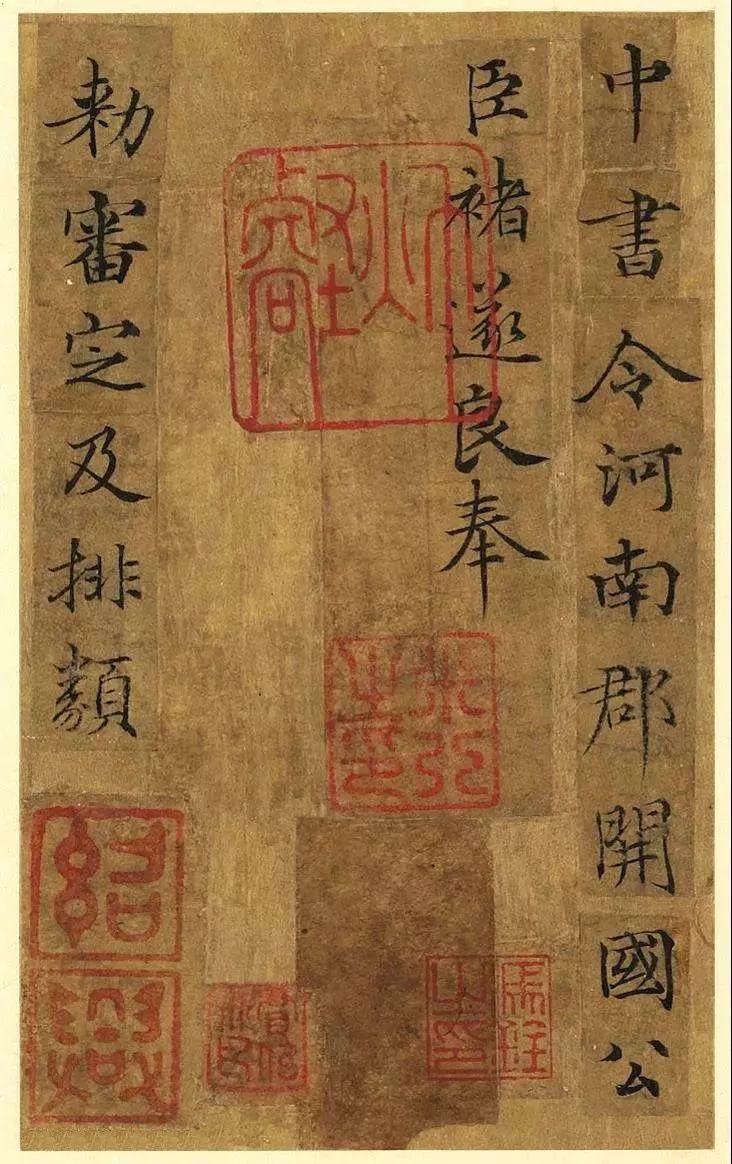 中書令河南郡開國公
臣褚遂良奉
勑審定及排類
紹興